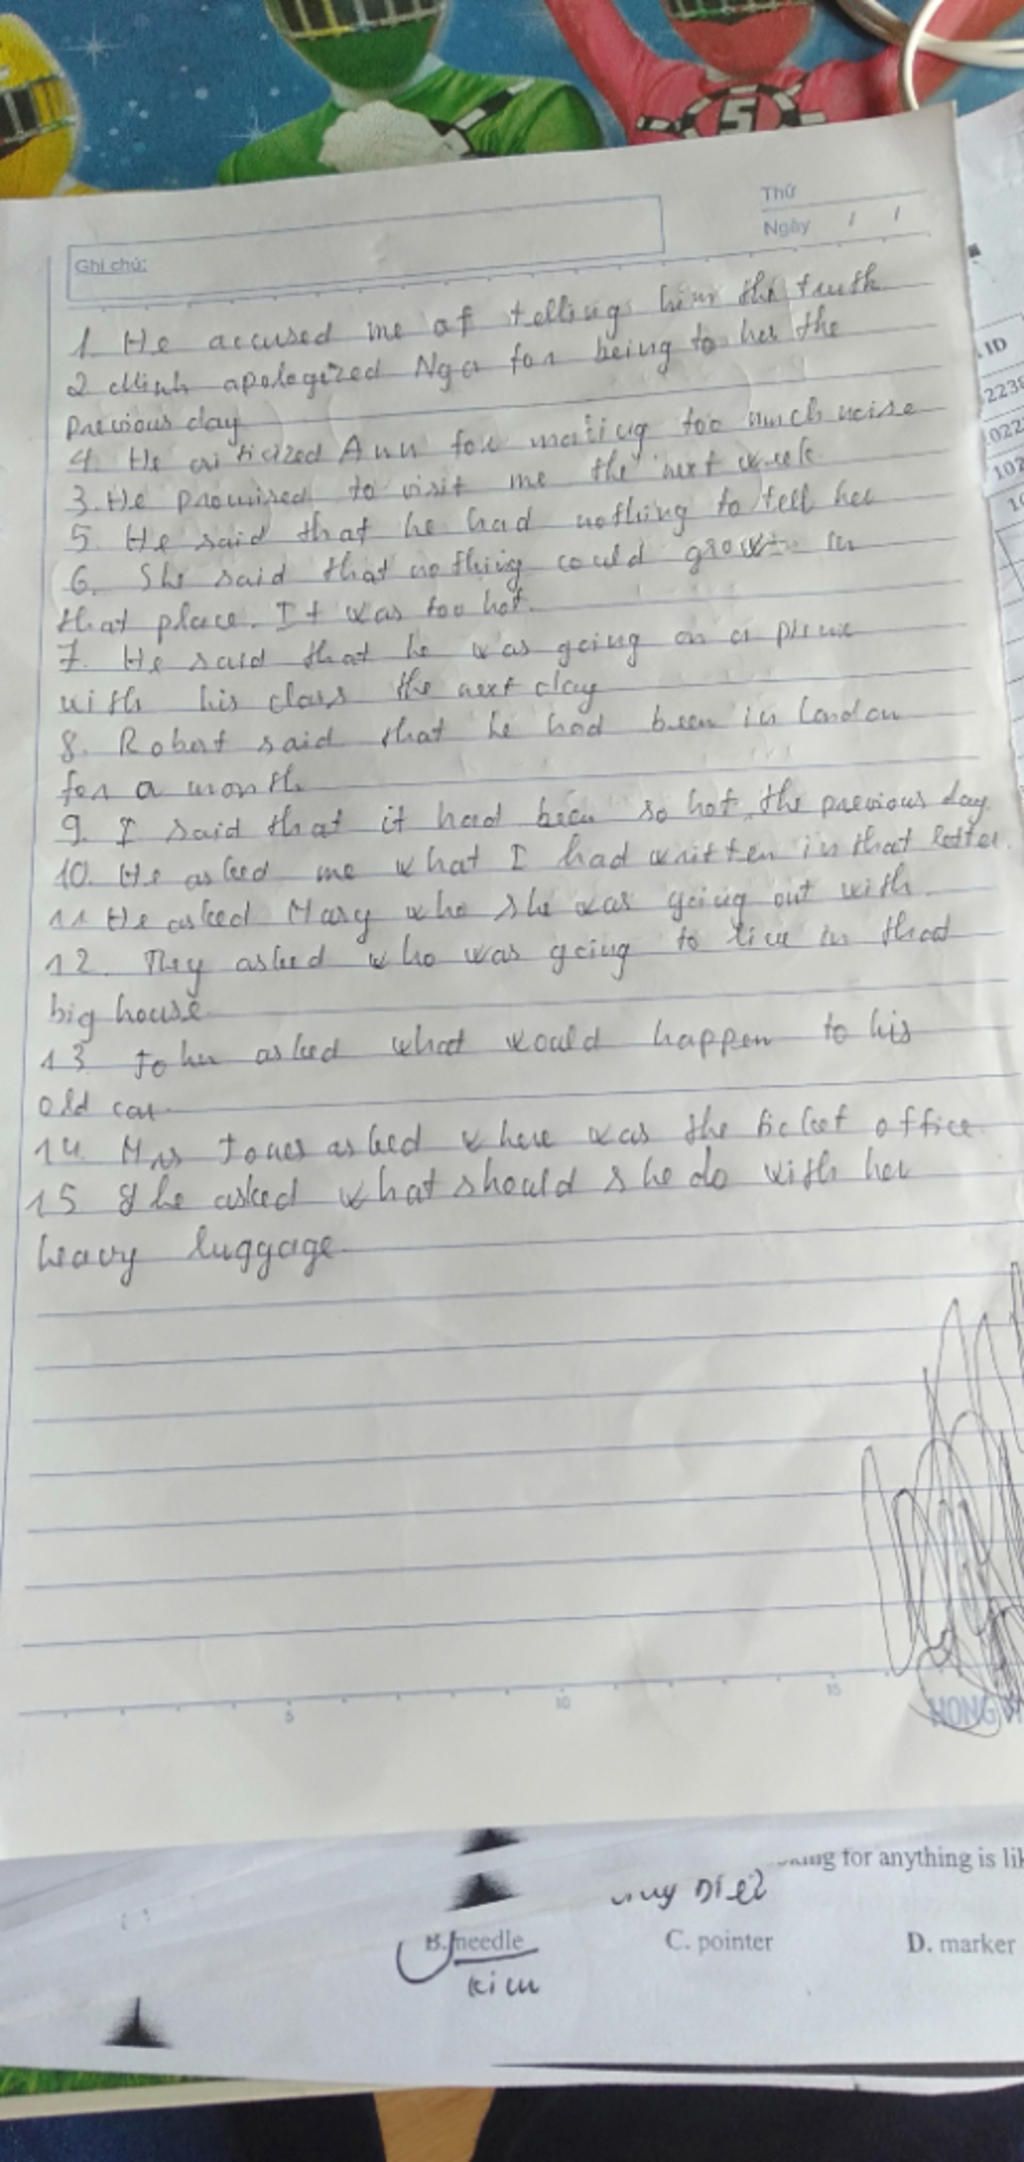 5
Thứ
Ngày / /
Ghi chú:
1. He accused me of telling him the truth
2 Minh apologized Nga for being to her the
previous day
4. He criticized Ann for making too much noise
3. He promised to visit me the next week
5. He said that he had nothing to tell her
6. She said that nothing could grow in
that place. It was too hot.
7. He said that he was going on a picnic
with his class the next day
8. Robert said that he had been in London
for a month
9. I said that it had been so hot the previous day
10. He asked me what I had written in that letter.
11 He asked Mary who she was going out with
12. They asked who was going to live in that
big house
13 John asked what would happen to his
old car
14. Mrs Jones asked where was the ticket office
15 She asked what should she do with her
heavy luggage
ID
2239
1022
102
10
5 10 15
HONG
for anything is
B. needle C. pointer D. marker
kim